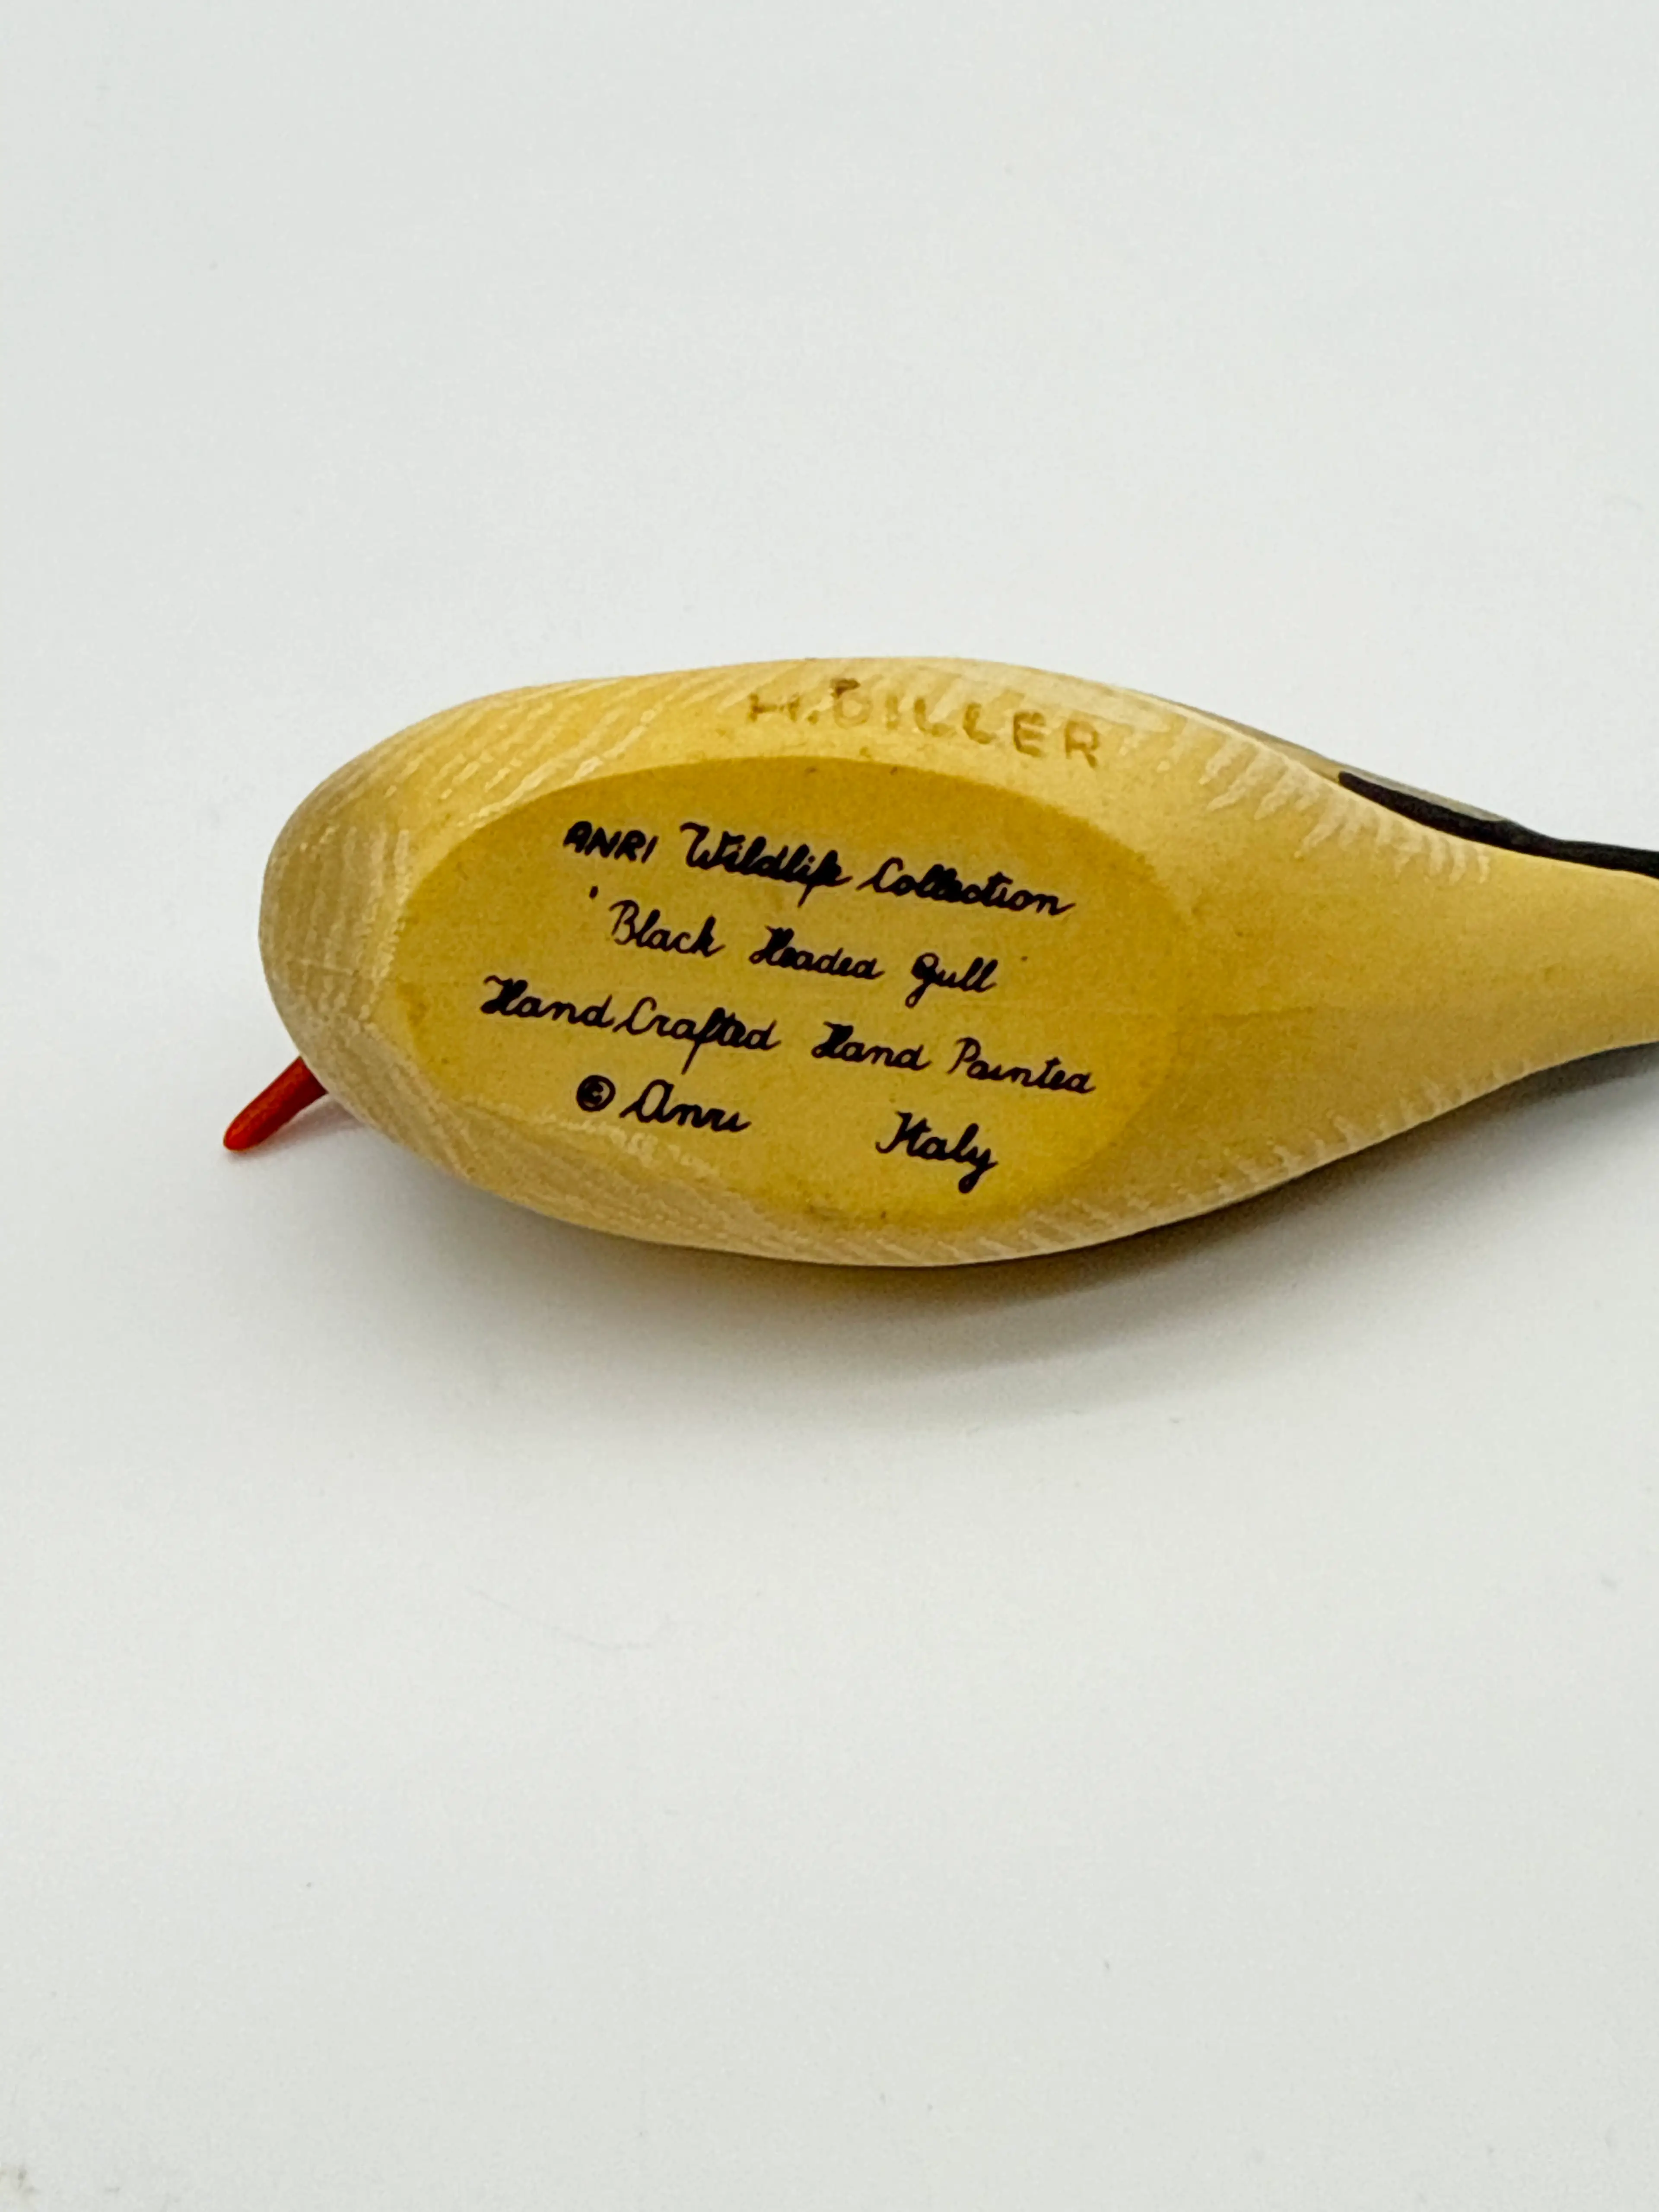 H. DILLER
ANRI Wildlife Collection
'Black Headed Gull'
Hand Crafted Hand Painted
© Anri Italy